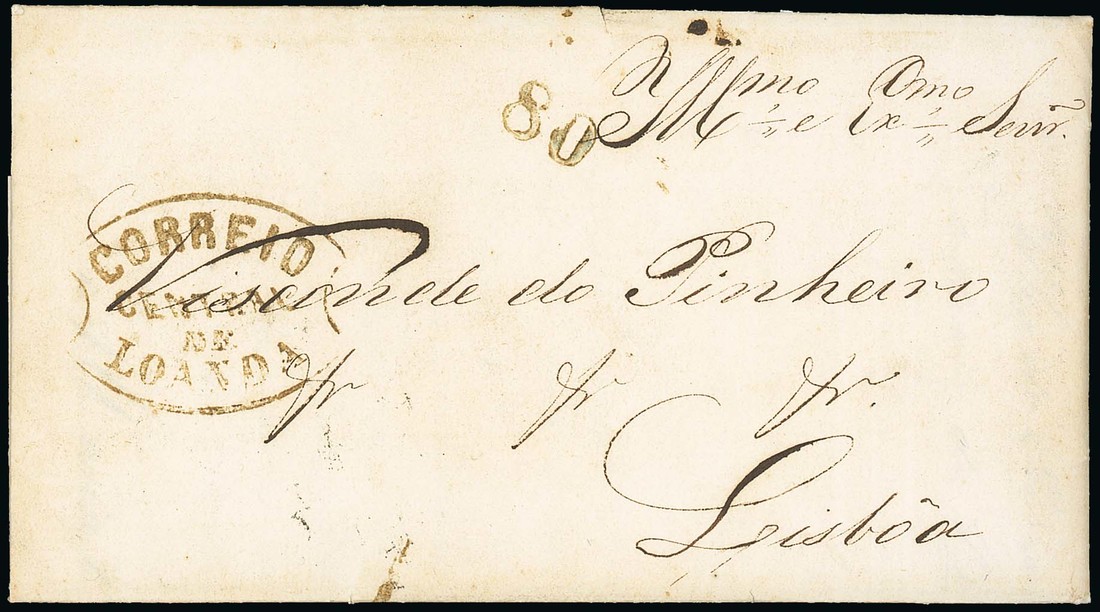 80
Illmo e Exmo Senr.
CORREIO
CENTRAL
DE
LOANDA
Visconde do Pinheiro
Lisbôa